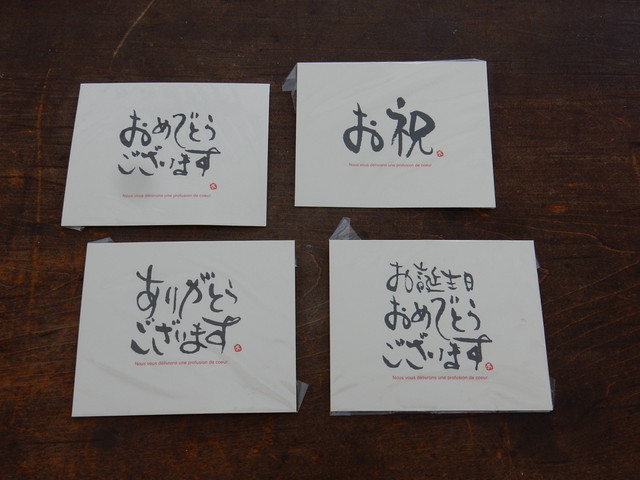 おめでとう
ございます
Nous vous délivrons une profusion de coeur.
お祝
Nous vous délivrons une profusion de coeur.
ありがとう
ございます
Nous vous délivrons une profusion de coeur.
お誕生日
おめでとう
ございます
Nous vous délivrons une profusion de coeur.